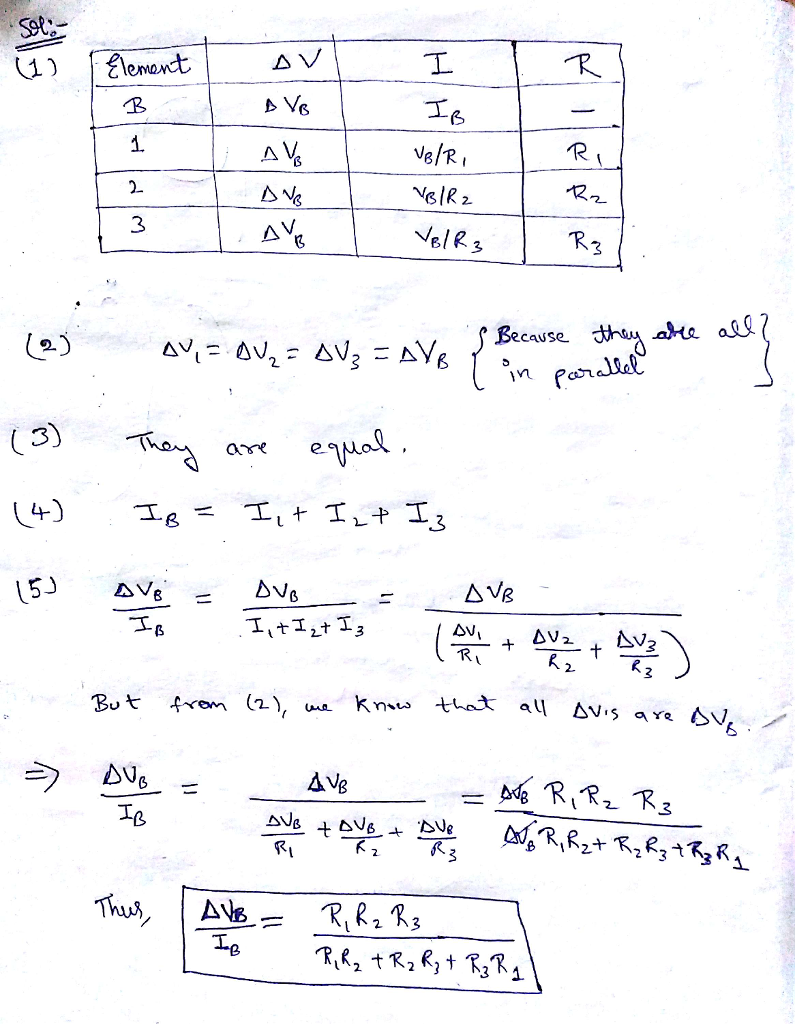 Sol:-
(1) Element ΔV I R
B ΔVB IB —
1 ΔVB VB/R1 R1
2 ΔVB VB/R2 R2
3 ΔVB VB/R3 R3
(2) ΔV1 = ΔV2 = ΔV3 = ΔVB { Because they are all in parallel }
(3) They are equal.
(4) IB = I1 + I2 + I3
(5) ΔVB/IB = ΔVB/(I1+I2+I3) = ΔVB/(ΔV1/R1 + ΔV2/R2 + ΔV3/R3)
But from (2), we know that all ΔVis are ΔVB.
⇒ ΔVB/IB = ΔVB/(ΔVB/R1 + ΔVB/R2 + ΔVB/R3) = ΔVB R1R2 R3/(ΔVB R1R2 + R2R3 + R3R1)
Thus, ΔVB/IB = R1R2R3/(R1R2 + R2R3 + R3R1)